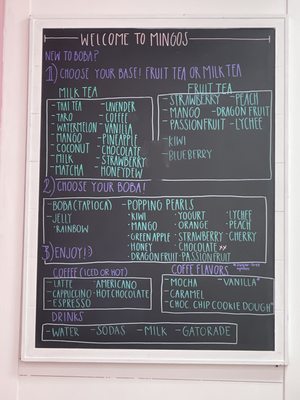 WELCOME TO MINGOS
NEW TO BOBA?
1) CHOOSE YOUR BASE! FRUIT TEA OR MILK TEA
MILK TEA
-THAI TEA -LAVENDER
-TARO -COFFEE
-WATERMELON -VANILLA
-MANGO -PINEAPPLE
-COCONUT -CHOCOLATE
-MILK -STRAWBERRY
-MATCHA -HONEYDEW
FRUIT TEA
-STRAWBERRY -PEACH
-MANGO -DRAGON FRUIT
-PASSIONFRUIT -LYCHEE
-KIWI
-BLUEBERRY
2) CHOOSE YOUR BOBA!
-BOBA (TAPIOCA) -POPPING PEARLS
-JELLY KIWI YOGURT LYCHEE
-RAINBOW MANGO ORANGE PEACH
GREEN APPLE STRAWBERRY CHERRY
HONEY CHOCOLATE
DRAGON FRUIT PASSIONFRUIT
3) ENJOY! :)
COFFEE (ICED OR HOT)
-LATTE -AMERICANO
-CAPPUCCINO -HOT CHOCOLATE
-ESPRESSO
COFFEE FLAVORS
-MOCHA -VANILLA*
-CARAMEL
-CHOC CHIP COOKIE DOUGH*
DRINKS
-WATER -SODAS -MILK -GATORADE